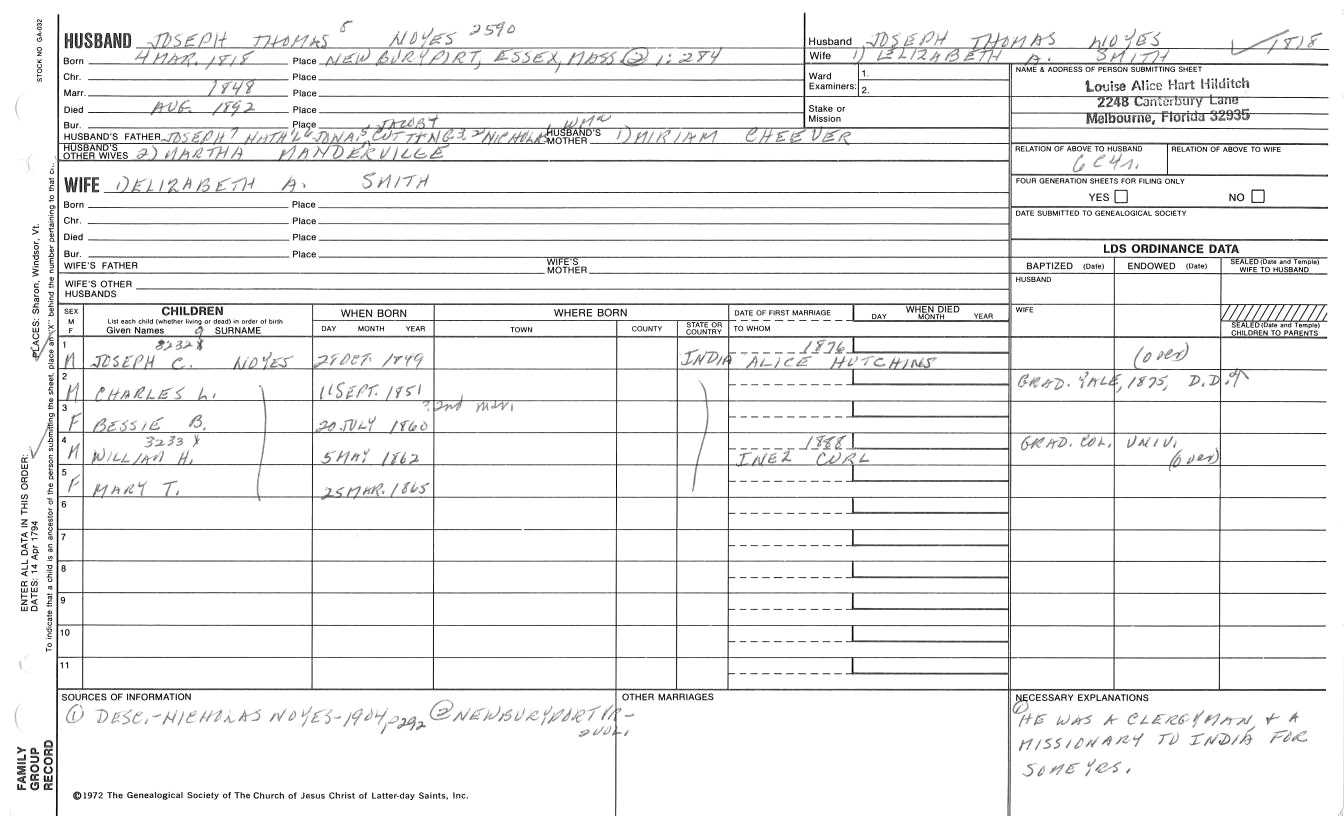 STOCK NO GA-032
HUSBAND JOSEPH THOMAS 8 NOYES 2590
Born 4 MAR. 1818 Place NEWBURYPORT, ESSEX, MASS ② 1:284
Chr. Place
Marr. 1848 Place
Died AUG. 1892 Place
Bur. Place
HUSBAND'S FATHER JOSEPH 7 NATH'L 6 JONA. 5 JACOB 4 CUTTING 3, 2 NICHOLAS 1 WM a HUSBAND'S MOTHER 1) MIRIAM CHEEVER
HUSBAND'S OTHER WIVES 2) MARTHA MANDERVILLE
WIFE 1) ELIZABETH A. SMITH
Born Place
Chr. Place
Died Place
Bur. Place
WIFE'S FATHER WIFE'S MOTHER
WIFE'S OTHER HUSBANDS
Husband JOSEPH THOMAS NOYES 1818
Wife 1) ELIZABETH A. SMITH
Ward Examiners: 1. 2.
Stake or Mission
NAME & ADDRESS OF PERSON SUBMITTING SHEET
Louise Alice Hart Hilditch
2248 Canterbury Lane
Melbourne, Florida 32935
RELATION OF ABOVE TO HUSBAND RELATION OF ABOVE TO WIFE
6C4r.
FOUR GENERATION SHEETS FOR FILING ONLY
YES NO
DATE SUBMITTED TO GENEALOGICAL SOCIETY
LDS ORDINANCE DATA
BAPTIZED (Date) ENDOWED (Date) SEALED (Date and Temple) WIFE TO HUSBAND
HUSBAND
WIFE
SEALED (Date and Temple) CHILDREN TO PARENTS
SEX M F CHILDREN WHEN BORN WHERE BORN DATE OF FIRST MARRIAGE WHEN DIED
List each child (whether living or dead) in order of birth
Given Names 9 SURNAME DAY MONTH YEAR TOWN COUNTY STATE OR COUNTRY TO WHOM DAY MONTH YEAR
1 M 3232 X JOSEPH C. NOYES 28 OCT. 1849 INDIA 1876 ALICE HUTCHINS (over)
2 M CHARLES L. 11 SEPT. 1851 GRAD. YALE, 1875, D.D.
? 2nd mar.
3 F BESSIE B. 20 JULY 1860
4 M 3233 X WILLIAM H. 5 MAY 1862 1888 INEZ CURL GRAD. COL. UNIV. (over)
5 F MARY T. 25 MAR. 1865
6
7
8
9
10
11
SOURCES OF INFORMATION
① DESC.-NICHOLAS NOYES-1904, p292 ② NEWBURYPORT VR-
2 VOL.
OTHER MARRIAGES
NECESSARY EXPLANATIONS
① HE WAS A CLERGYMAN, & A
MISSIONARY TO INDIA FOR
SOME YRS.
©1972 The Genealogical Society of The Church of Jesus Christ of Latter-day Saints, Inc.
FAMILY GROUP RECORD
ENTER ALL DATA IN THIS ORDER:
DATES: 14 Apr 1794 PLACES: Sharon, Windsor, Vt.
To indicate that a child is an ancestor of the person submitting the sheet, place an "X" behind the number pertaining to that